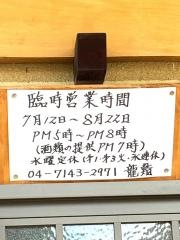 臨時営業時間
7月12日～8月22日
PM5時～PM8時
(酒類の提供PM7時)
水曜定休(第1・第3火、水連休)
04-7143-2971 龍鬚